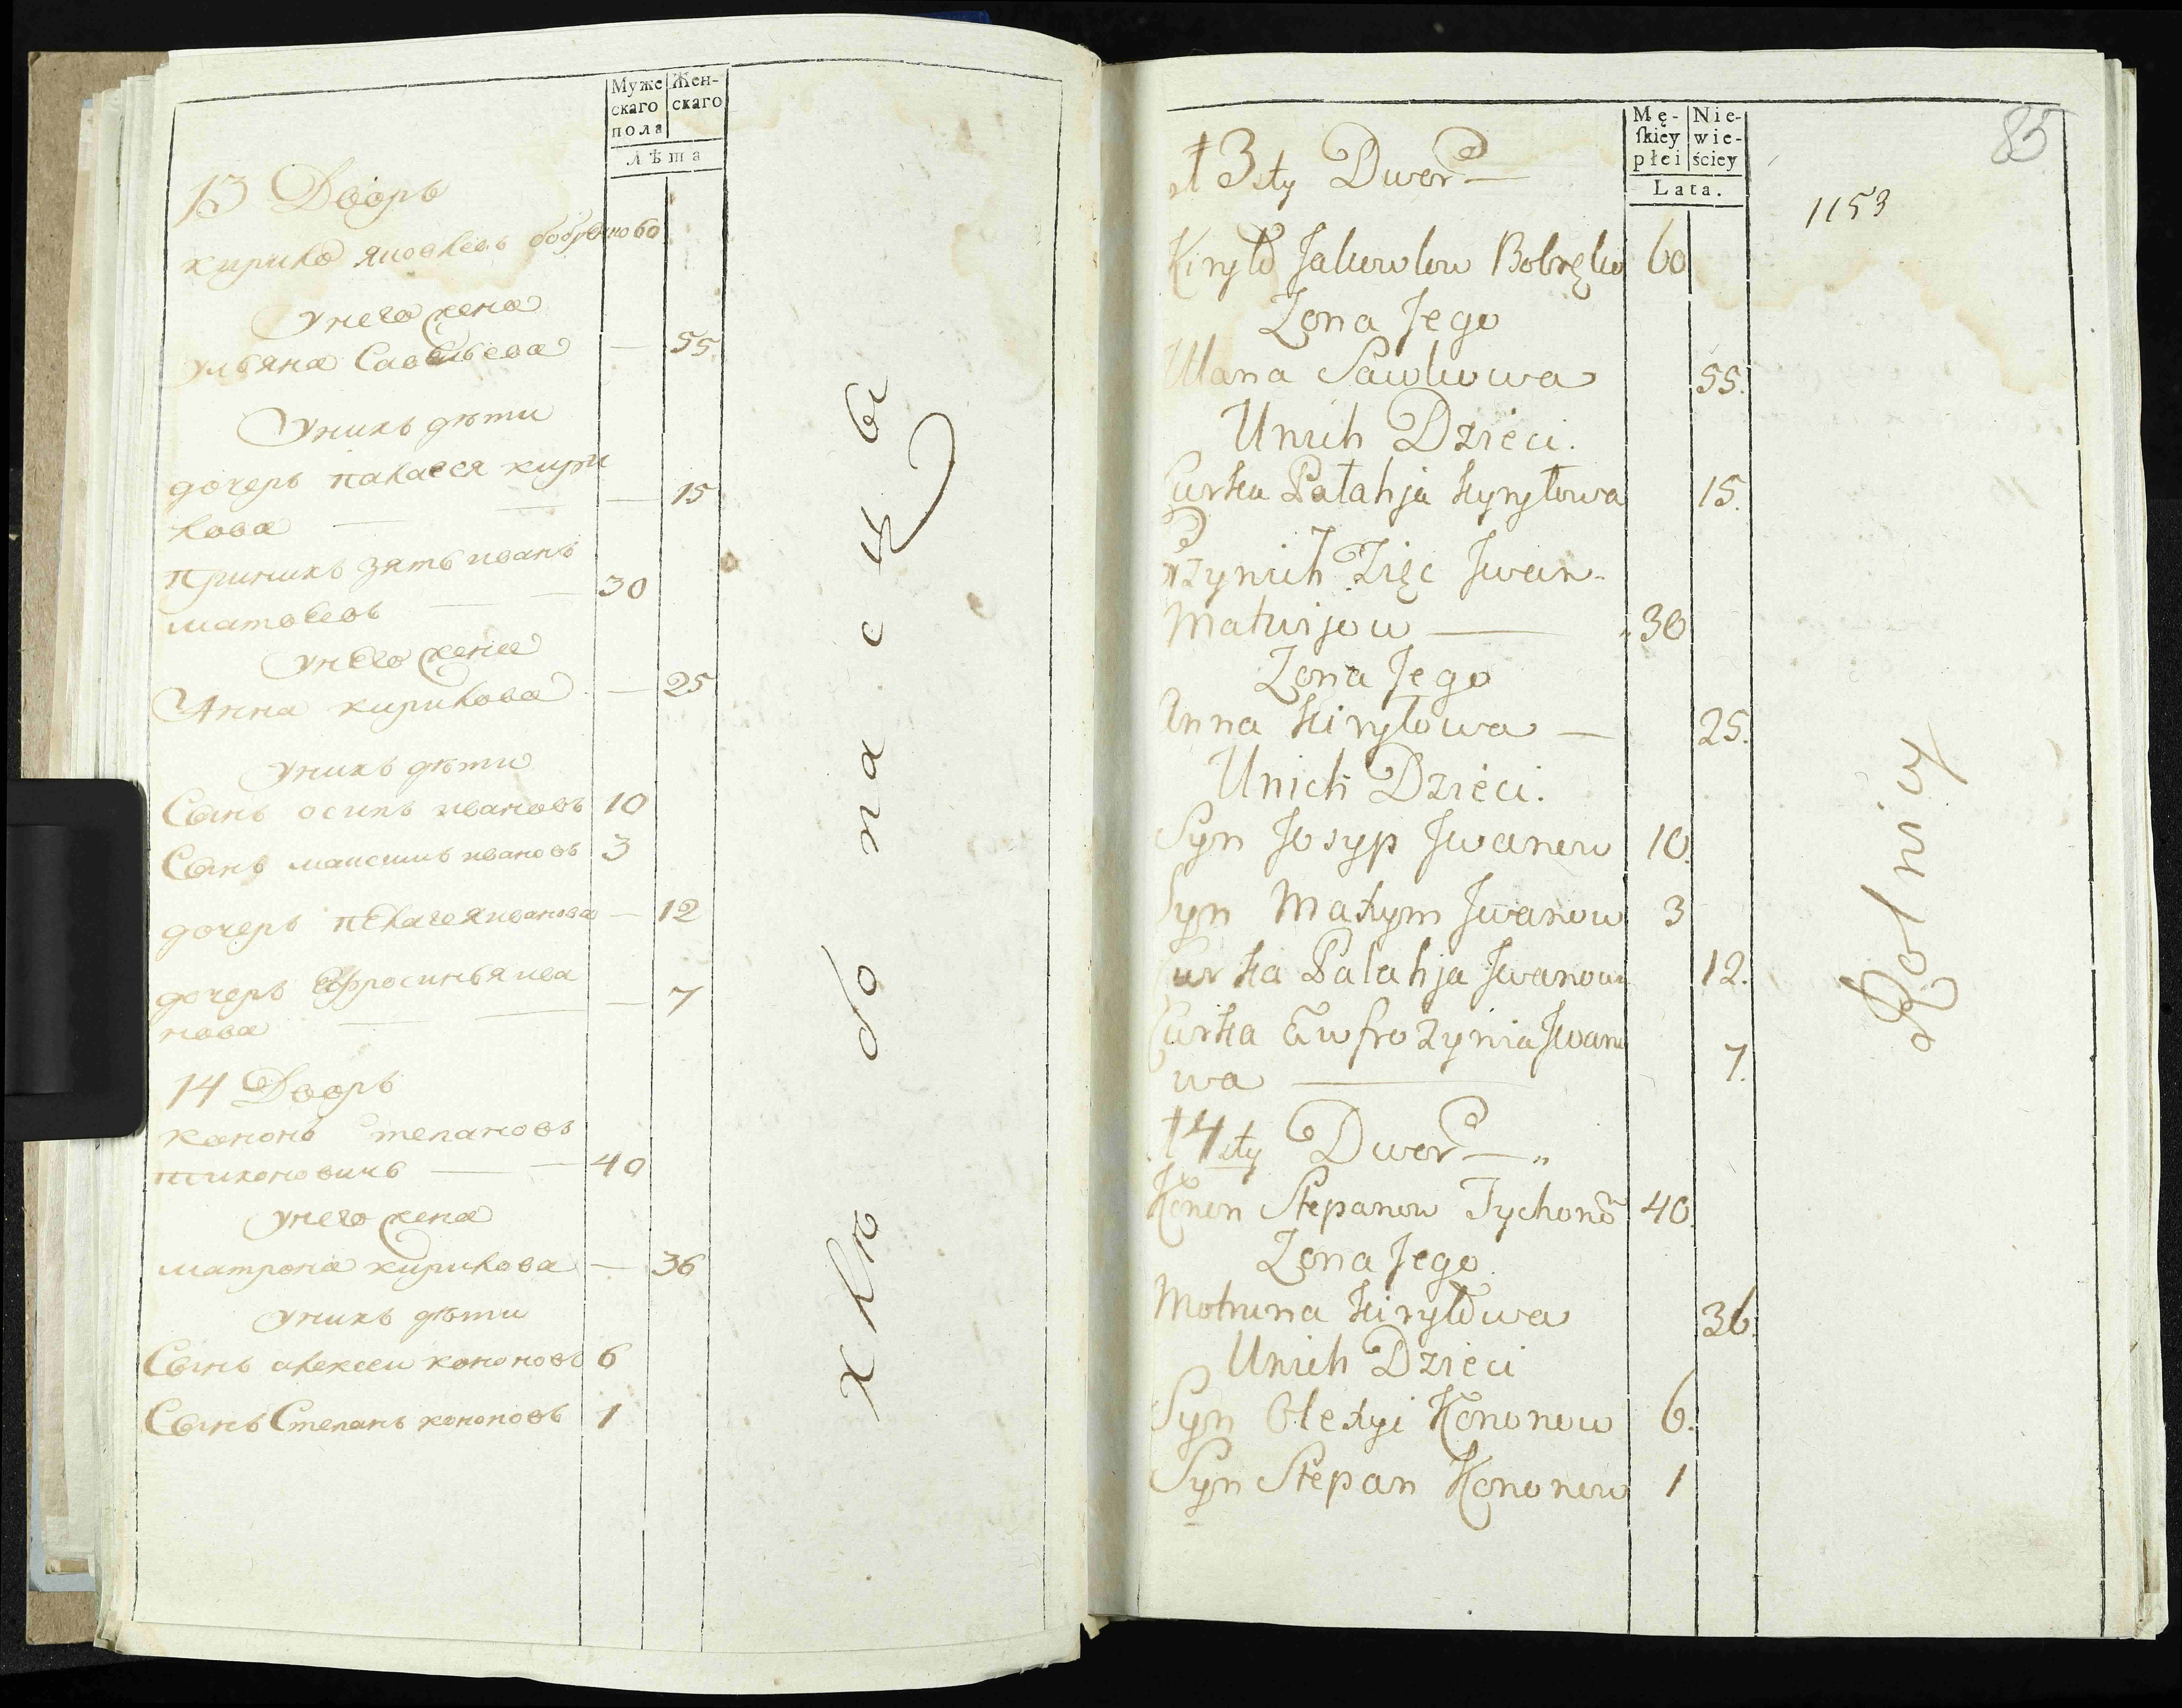 Муже
скаго
пола
Жен-
скаго
Лѣта
13 Дворъ
кирило яковлевъ бобренко 60
Унего жена
ульяна Савельева — 55
Унихъ дѣти
дочерь палагея кири
лова — — — 15
принихъ зять иванъ
матвеевъ — — 30
унего жена
Анна кирилова — 25
унихъ дѣти
Сынъ осипъ ивановъ 10
Сынъ максимъ ивановъ 3
дочерь пелагея иванова — 12
дочерь Ефросинья ива
нова — — — 7
14 Дворъ
кононъ степановъ
тихоновичъ — — 40
унего жена
матрона кирилова — 36
унихъ дѣти
Сынъ алексеи кононовъ 6
Сынъ Степанъ кононовъ 1
хлѣбопасцы
Mę-
skiey
płei
Nie-
wie-
ściey
Lata.
85
1153
13sty Dwor —
Kiryło Jakowlow Bobręko 60
Zona Jego
Ulana Sawlowa 55.
Unich Dzieci.
Curka Pałahja Kyryłowa 15.
Przynich Zięc Jwan
Matwijow — 30
Zona Jego
Anna Kiryłowa — 25.
Unich Dzieci.
Syn Josyp Jwanow 10.
Syn Maxym Jwanow 3
Curka Palahja Jwanowa 12.
Curka Ewfrozynia Jwano
wa — 7.
14sty Dwor —
Konon Stepanow Tychono 40.
Zona Jego
Motruna Kiryłowa 36.
Unich Dzieci
Syn Olexyi Kononow 6.
Syn Stepan Kononow 1
Rolnicy